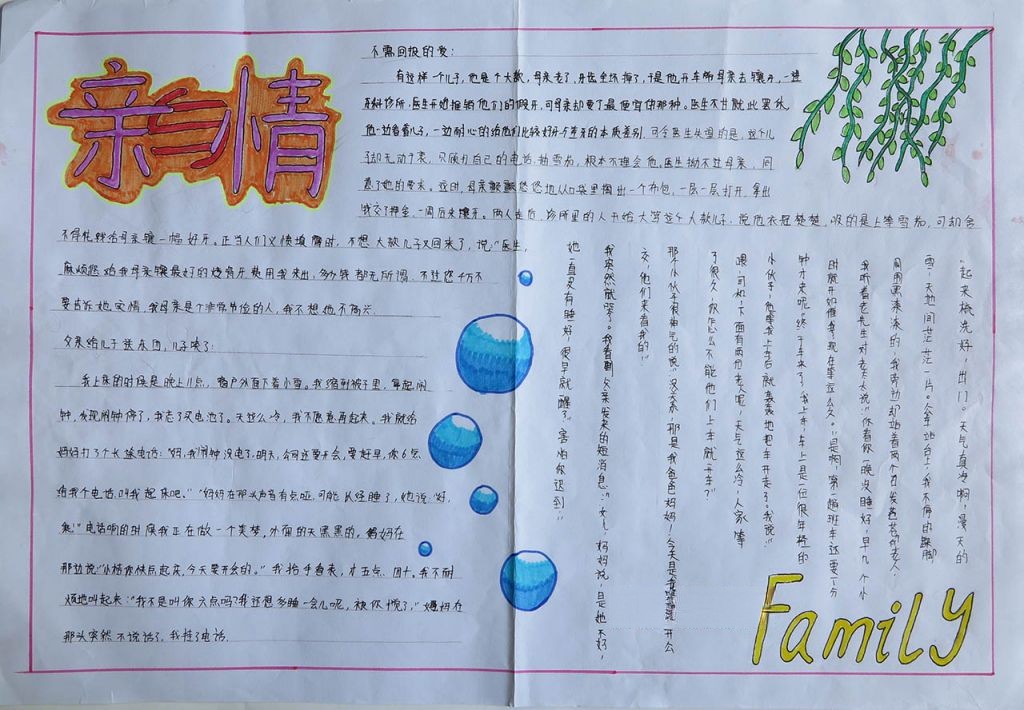 亲情
不需回报的爱:
有这样一个儿子,他是个大款,母亲老了,牙齿全坏掉了,于是他开车带母亲去镶牙,一进
牙科诊所,医生开始推销他们的假牙,可母亲却要了最便宜的那种。医生不甘就此罢休,
他一边看看儿子,一边耐心的给他们比较好牙与差牙的本质差别。可令医生失望的是,这个儿
子却无动于衷,只顾打自己的电话,抽雪茄,根本不理会他。医生拗不过母亲,同
意了她的要求。这时,母亲颤颤悠悠地从口袋里掏出一个布包,一层一层打开,拿出
钱交了押金,一周后来镶牙。两人走后,诊所里的人开始大骂这个大款儿子,说他衣冠楚楚,吸的是上等雪茄,可却舍
不得花钱给母亲镶一幅好牙。正当人们义愤填膺时,不想大款儿子又回来了,说:“医生,
麻烦您给我母亲镶最好的烤瓷牙,费用我来出,多少钱都无所谓。不过您千万不
要告诉她实情,我母亲是个非常节俭的人,我不想她不高兴。
我上床的时候是晚上11点,窗户外面下着小雪。我缩到被子里,拿起闹
钟,发现闹钟停了,我忘了买电池了。天这么冷,我不愿意再起来。我就给
妈妈打了个长途电话:“妈,我闹钟没电了,明天,公司还要开会,要赶早,你6点
给我个电话,叫我起床吧。”“妈妈在那头声音有点哑,可能已经睡了,她说:“好,
乖!”电话响的时候我正在做一个美梦,外面的天黑黑的。妈妈在
那边说:“小桔你快点起床,今天要开会的。”我抬手看表,才五点四十。我不耐
烦地叫起来:“我不是叫你六点吗?我还想多睡一会儿呢,被你搅了。”妈妈在
那头突然不说话了,我挂了电话。
起来梳洗好,出门。天气真冷啊,漫天的
雪,天地间茫茫一片。公车站台上,我不停的跺脚
周围黑漆漆的,我旁边却站着两个白发苍苍的老人,
我听着老先生对老太太说:“你看你一晚没睡好,早几个小
时就开始催我,现在等这么久。”是啊,第一趟班车还要五分
钟才来呢。终于车来了,我上车,车上是一位很年轻的
小伙子,他等我上车后就轰轰地把车开走了。我说:“
喂,司机,下面有两位老人呢,天气这么冷,人家等
了很久,你怎么不等他们上车就开车?”
那个小伙子很神气的说:“没关系,那是我爸爸妈妈,今天是我第一天开公
交,他们来看我的。”
我突然就哭了。我看到父亲发来的短消息:“女儿,妈妈说,是她不好,
她一直没有睡好,很早就醒了。害怕你迟到。”
Family